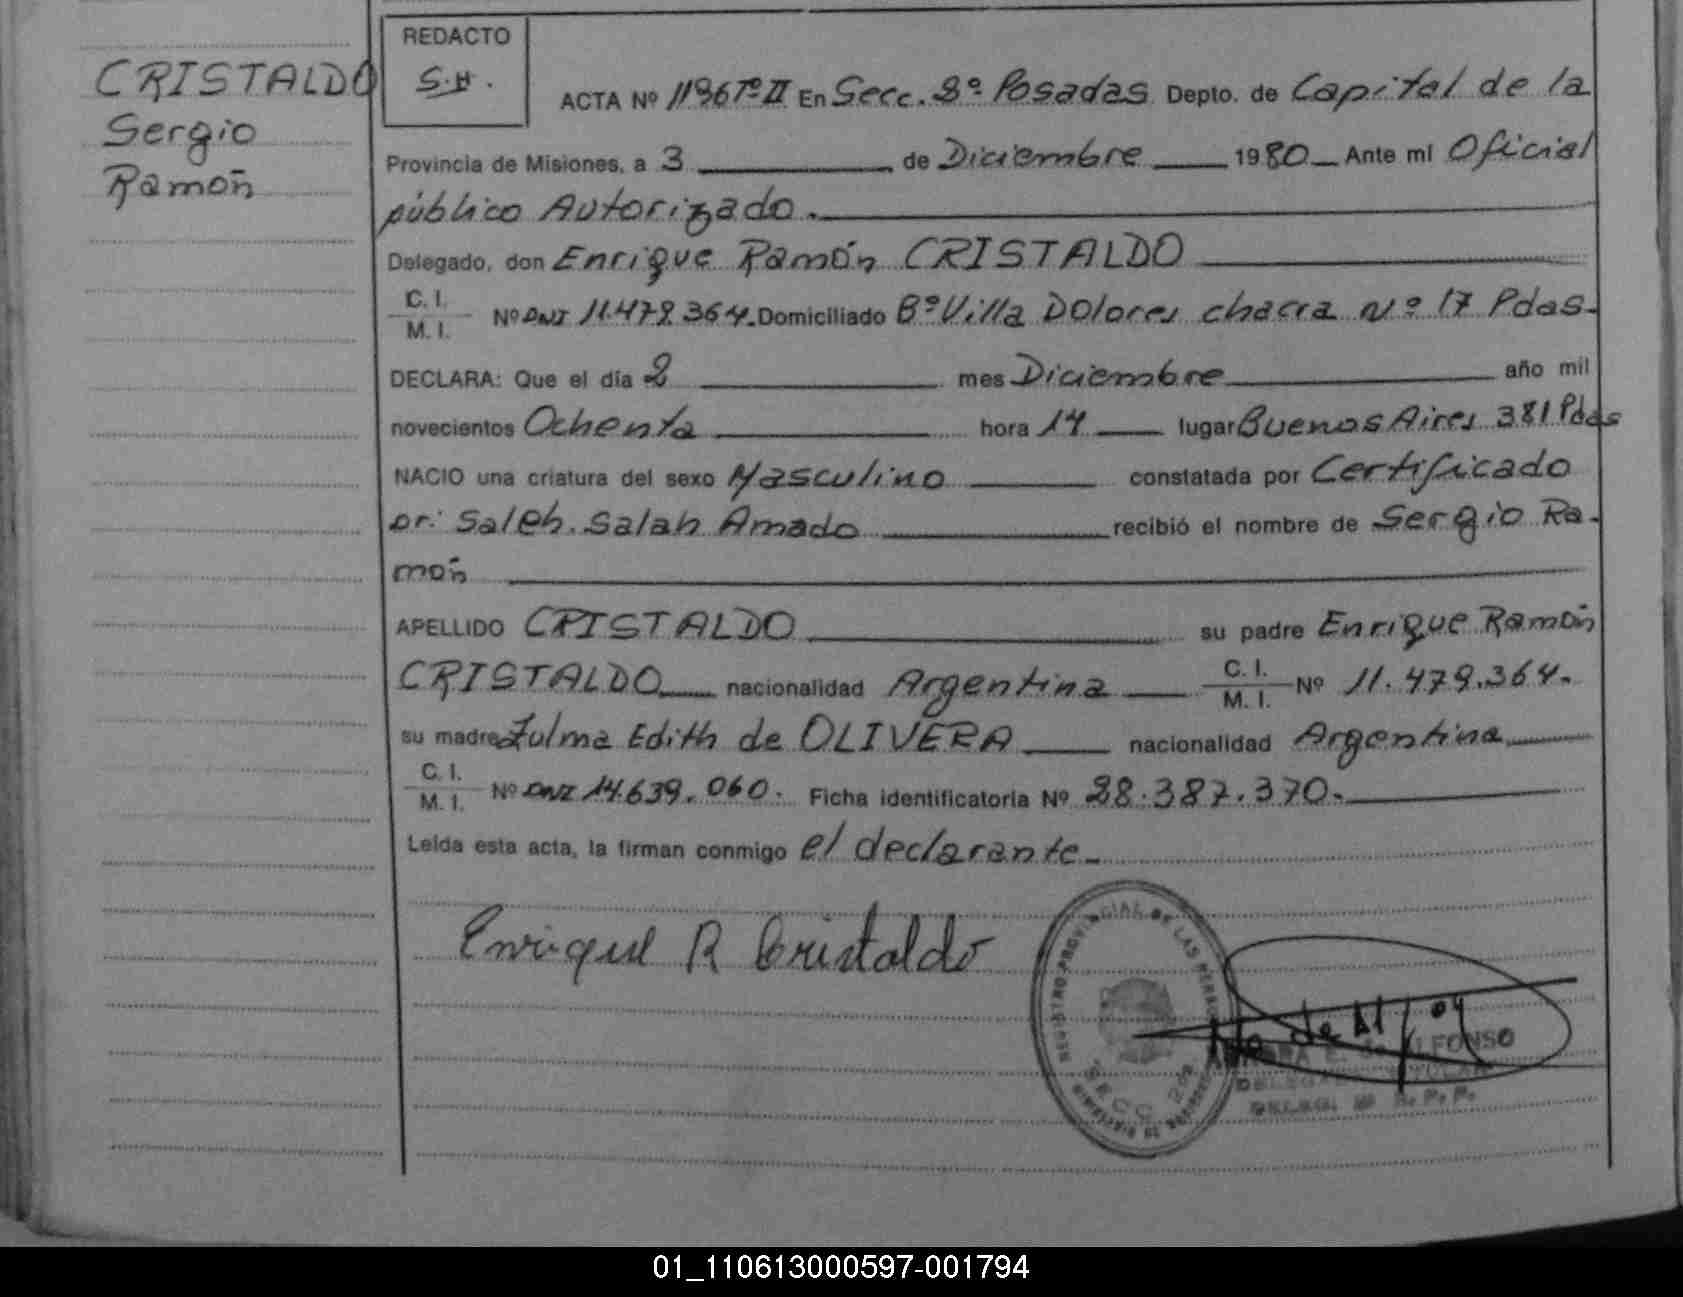 CRISTALDO
Sergio
Ramón
REDACTO
S.H.
ACTA Nº 1196 Tº II En Secc. 2º Posadas Depto. de Capital de la
Provincia de Misiones, a 3 de Diciembre 1980 Ante mi Oficial
público Autorizado.
Delegado, don Enrique Ramón CRISTALDO
C. I.
M. I. Nº DNI 11.479.364. Domiciliado Bº Villa Dolores chacra Nº 17 Pdas.
DECLARA: Que el día 2 mes Diciembre año mil
novecientos Ochenta hora 14 lugar Buenos Aires 381 Pdas
NACIO una criatura del sexo Masculino constatada por Certificado
Dr: Saleh. Salah Amado recibió el nombre de Sergio Ra-
món
APELLIDO CRISTALDO su padre Enrique Ramón
CRISTALDO nacionalidad Argentina C. I.
M. I. Nº 11.479.364.
su madre Zulma Edith de OLIVERA nacionalidad Argentina
C. I.
M. I. Nº DNI 14.639.060. Ficha identificatoria Nº 28.387.370.
Leída esta acta, la firman conmigo el declarante.
Enrique R Cristaldo
REGISTRO PROVINCIAL DE LAS PERSONAS
SECC. 2da
E. de ALFONSO
DELEGADA TITULAR
DELEG. R. P. P.
01_110613000597-001794